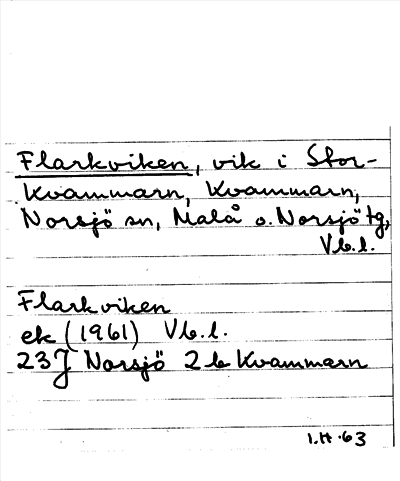 Flarkviken, vik i Stor-
Kvammarn, Kvammarn,
Norsjö sn, Malå o. Norsjö tg,
Vb.l.
Flarkviken
ek (1961) Vb.l.
23J Norsjö 2b Kvammarn
I.H. 63